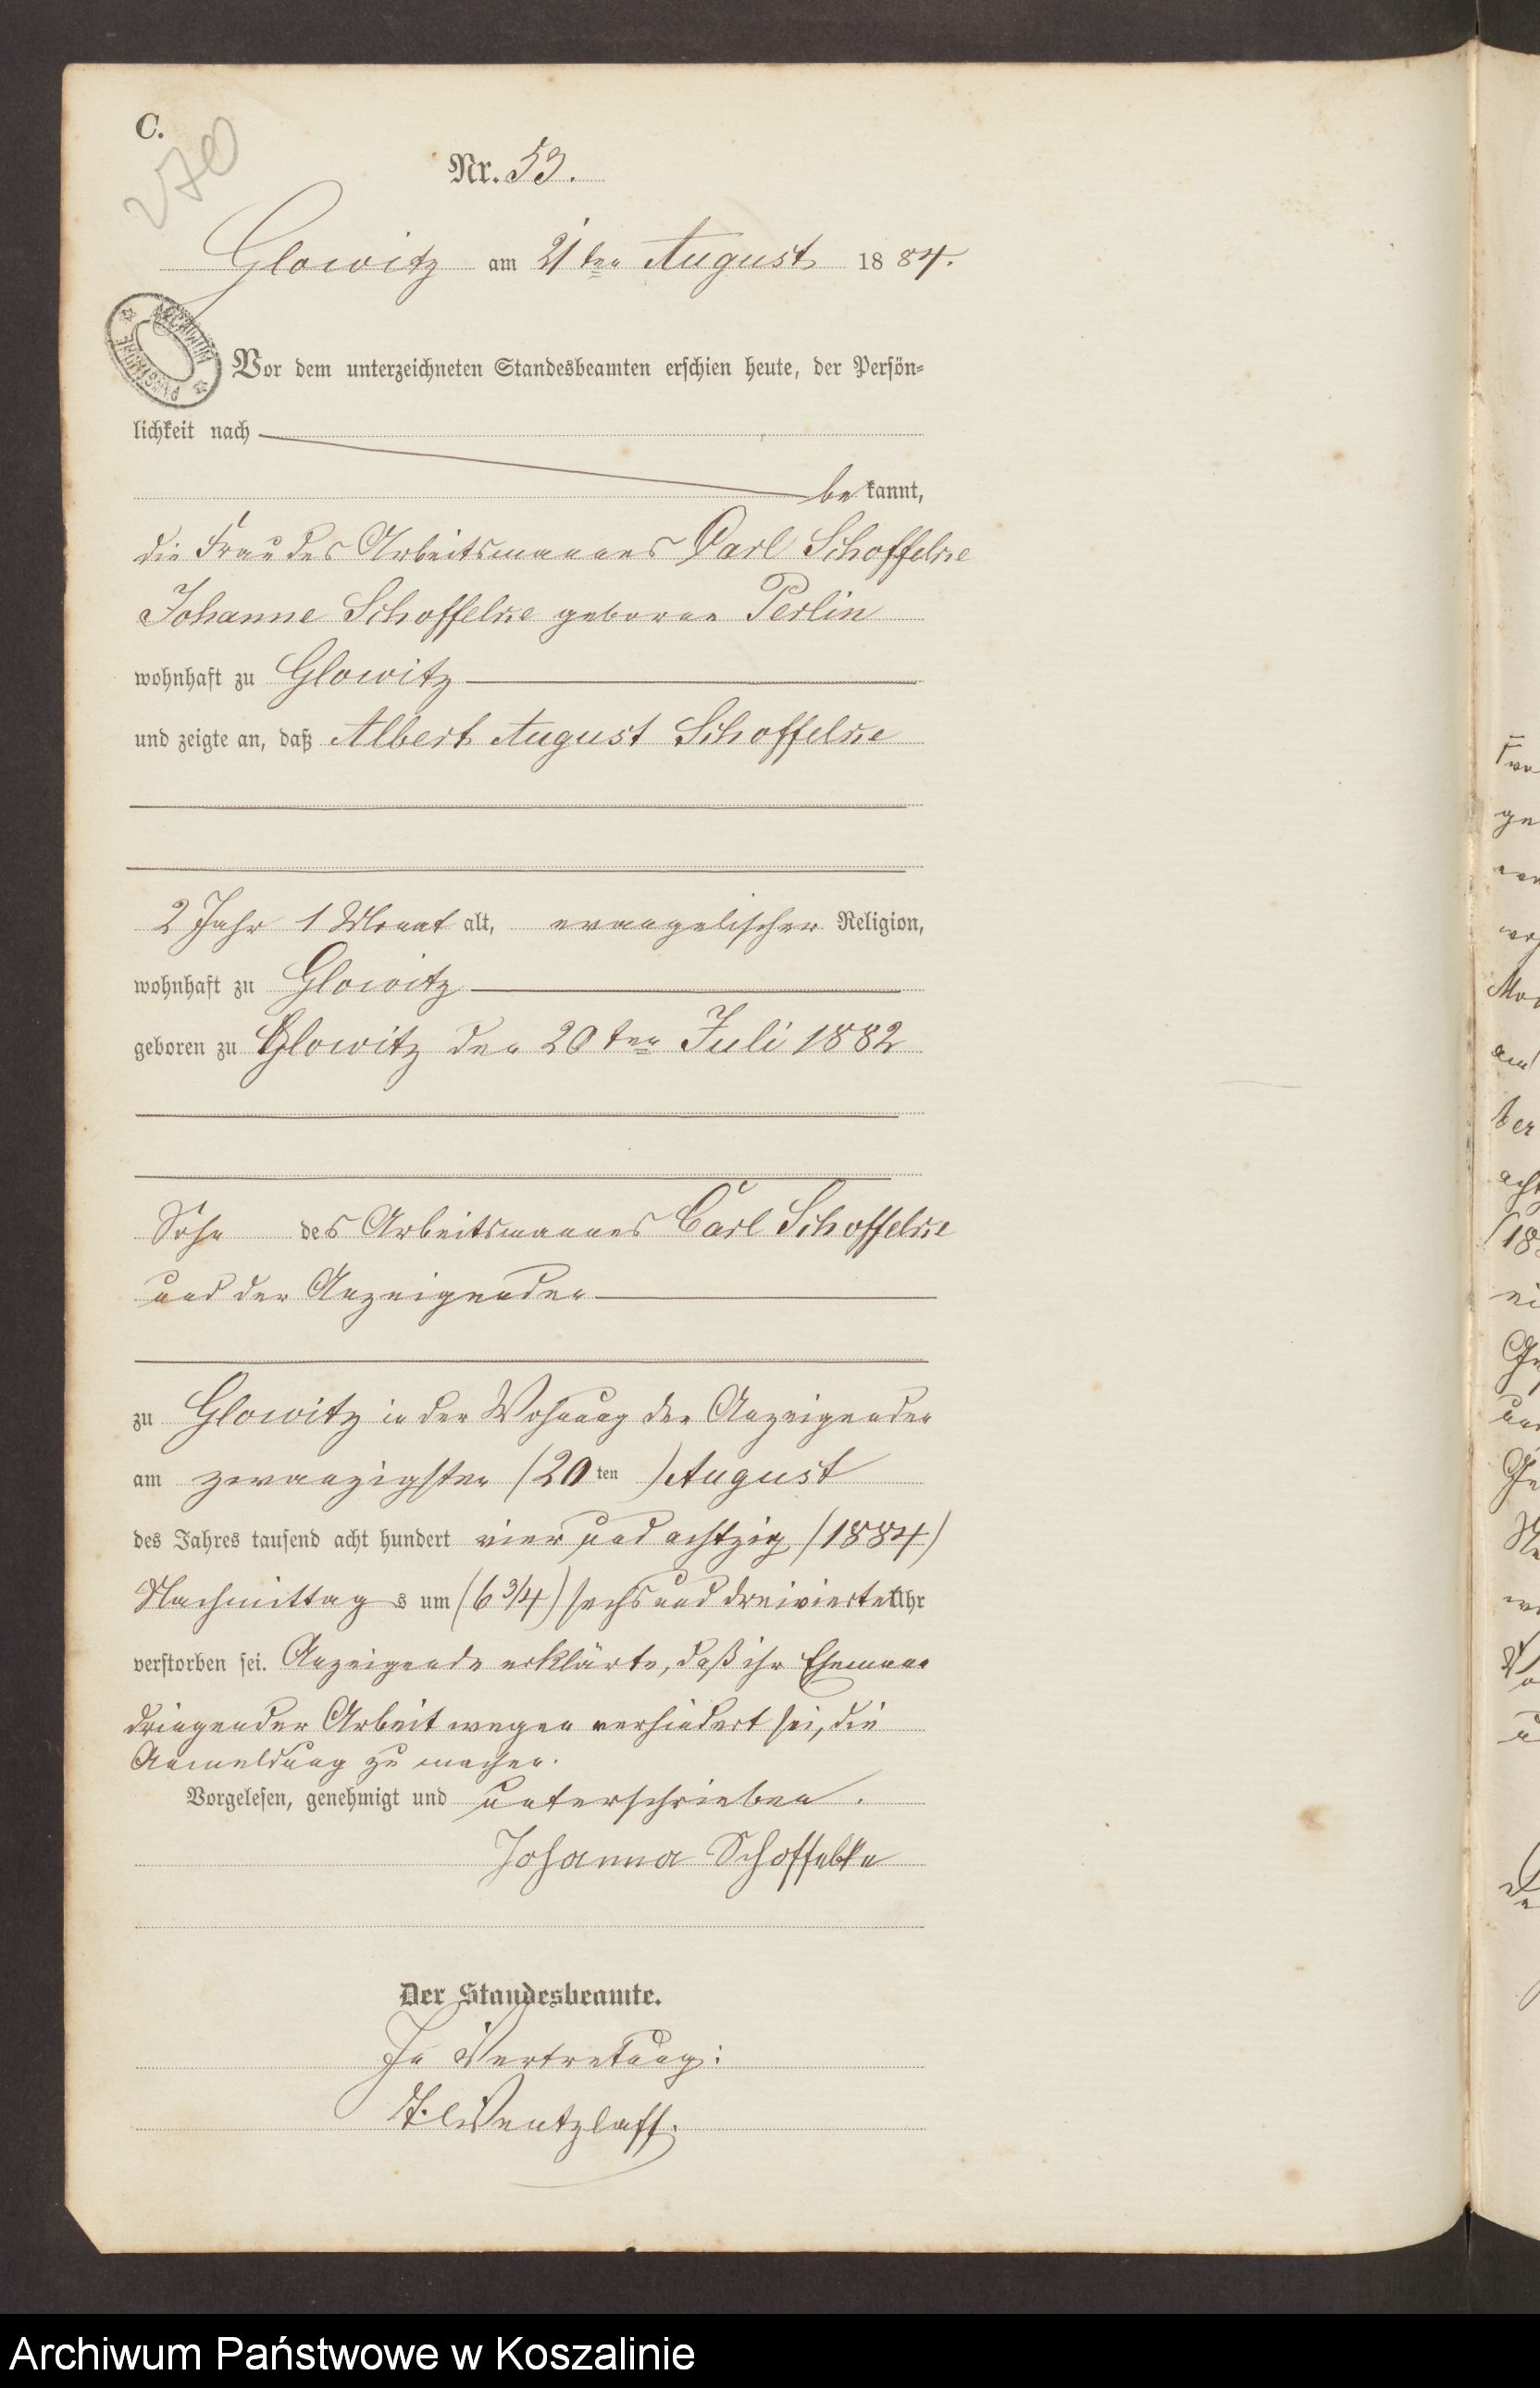 C.
270
Nr. 53.
Glowitz am 21ten August 1884.
Vor dem unterzeichneten Standesbeamten erschien heute, der Persön-
lichkeit nach
bekannt,
die Frau des Arbeitsmannes Carl Schoffelke
Johanne Schoffelke geborne Perlin
wohnhaft zu Glowitz
und zeigte an, daß Albert August Schoffelke
2 Jahr 1 Monat alt, evangelischer Religion,
wohnhaft zu Glowitz
geboren zu Glowitz den 20ten Juli 1882
Sohn des Arbeitsmannes Carl Schoffelke
und der Anzeigenden
zu Glowitz in der Wohnung der Anzeigenden
am zwanzigsten (20ten) August
des Jahres tausend acht hundert vier und achtzig (1884)
Nachmittags um (6 3/4) sechs und dreiviertel Uhr
verstorben sei. Anzeigende erklärte, daß ihr Ehemann
dringender Arbeit wegen verhindert sei, die
Anmeldung zu machen.
Vorgelesen, genehmigt und unterschrieben.
Johanna Schoffelke
Der Standesbeamte.
In Vertretung:
Wentzlaff.
Archiwum Państwowe w Koszalinie